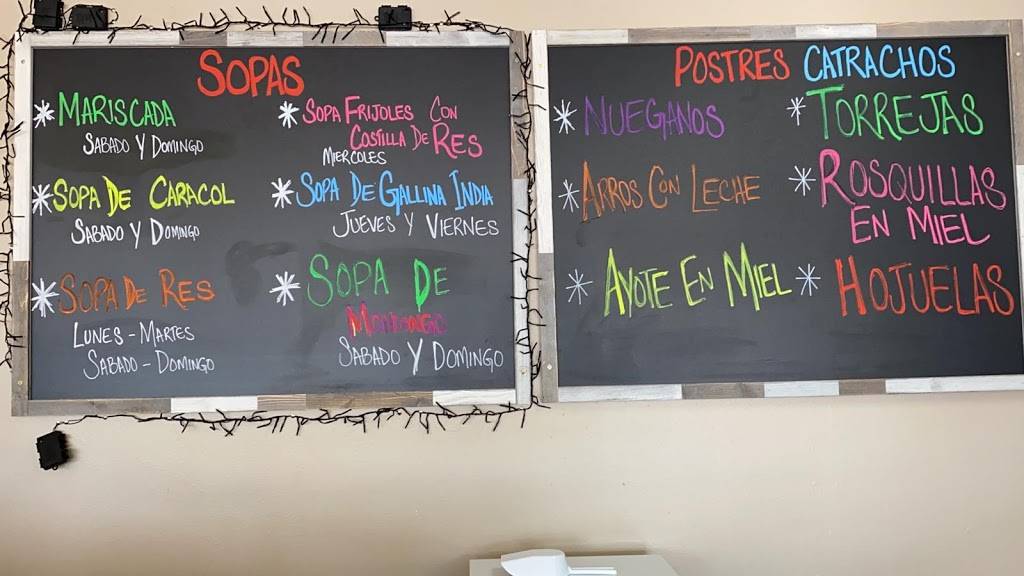 SOPAS
MARISCADA
SABADO Y DOMINGO
SOPA DE CARACOL
SABADO Y DOMINGO
SOPA DE RES
LUNES - MARTES
SABADO - DOMINGO
SOPA FRIJOLES CON
COSTILLA DE RES
MIERCOLES
SOPA DE GALLINA INDIA
JUEVES Y VIERNES
SOPA DE
MONDONGO
SABADO Y DOMINGO
POSTRES CATRACHOS
NUEGANOS
ARROS CON LECHE
AYOTE EN MIEL
TORREJAS
ROSQUILLAS
EN MIEL
HOJUELAS